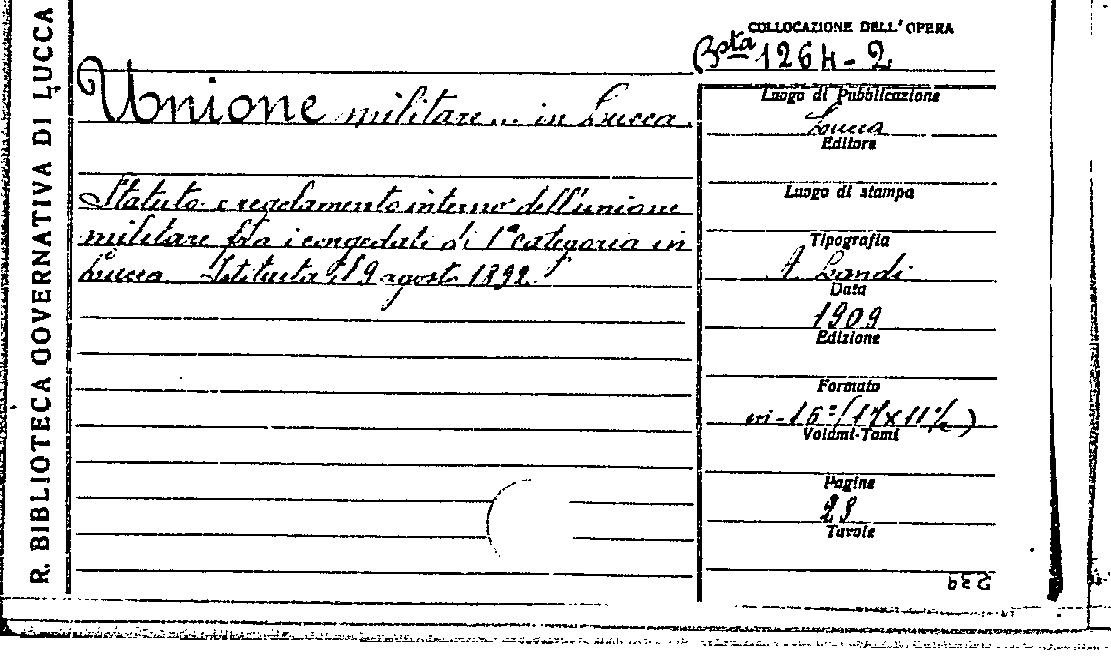 R. BIBLIOTECA GOVERNATIVA DI LUCCA
COLLOCAZIONE DELL'OPERA
Bsta 1264-2
Unione militare... in Lucca.
Statuto e regolamento interno dell'unione
militare fra i congedati di 1a categoria in
Lucca. Istituita il 19 agosto 1892.
Luogo di Pubblicazione
Lucca
Editore
Luogo di stampa
Tipografia
Landi
Data
1909
Edizione
Formato
Volumi-Tomi
Pagine
Tavole
239